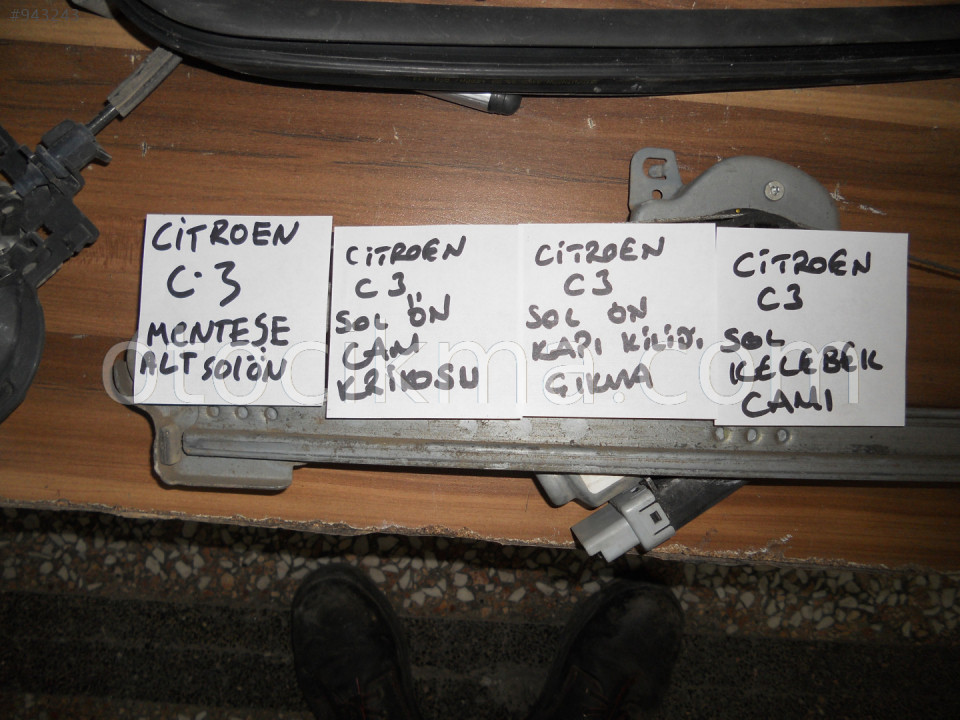 #943243
CiTROEN
C.3
MENTEŞE
ALT SOLÖN
CiTROEN
C3
SOL ÖN
CAM
KRİKOSU
CiTROEN
C3
SOL ÖN
KAPI KİLİDİ
ÇIKMA
CiTROEN
C3
SOL
KELEBEK
CAMI
otocikma.com